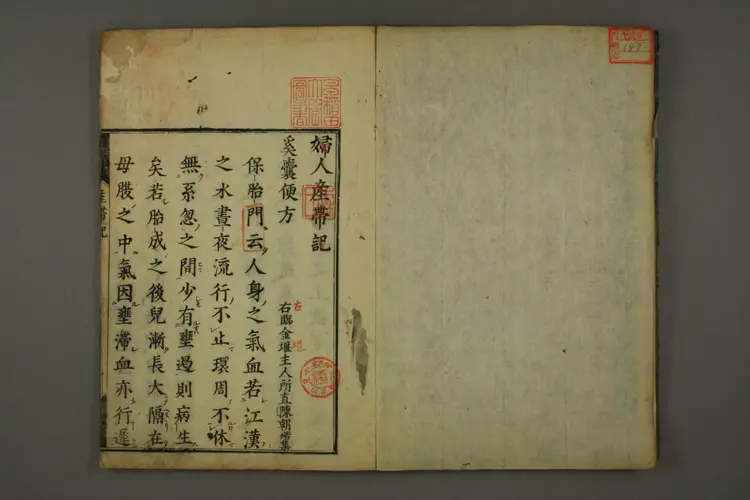 婦人産帯記
奚嚢便方
右臨金堰主人所直陳朝堦集
保胎門云人身之氣血若江漢
之水晝夜流行不止環周不休
無系忽之間少有壅過則病生
矣若胎成之後兒漸長大隔在
母股之中氣因壅滯血亦行遲
産帯記